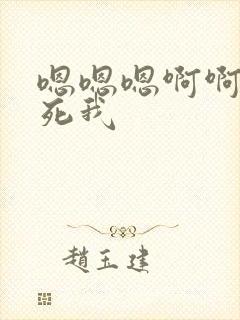 嗯嗯嗯啊啊
死我
趙玉建